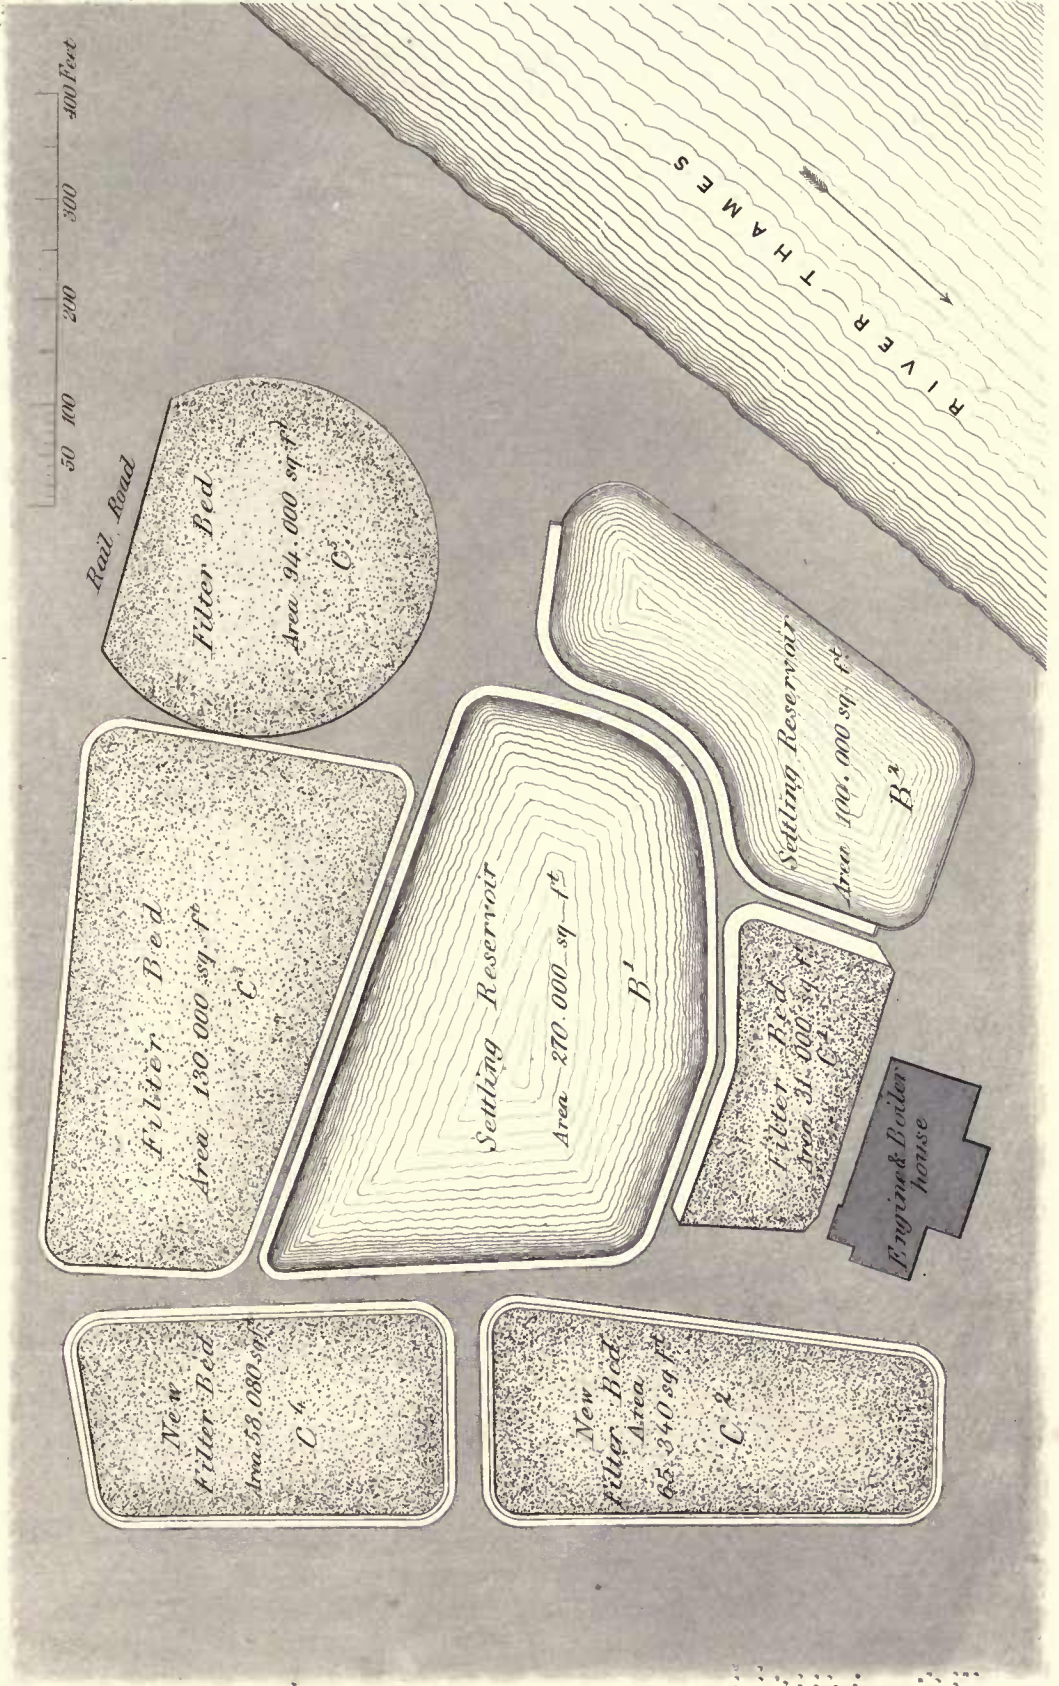 50 100 200 300 400 Feet
Rail Road
RIVER THAMES
Filter Bed
Area 94.000 sq ft
C 5.
Filter Bed
Area 130.000 sq ft
C 3
Settling Reservoir
Area 270.000 sq ft
B 1
Settling Reservoir
Area 106.000 sq ft
B 2
Filter Bed
Area 31.000 sq ft
C 1.
Engine & Boiler
house
New
Filter Bed
Area 58.080 sq ft
C 4
New
Filter Bed
Area
65.340 sq ft
C 2